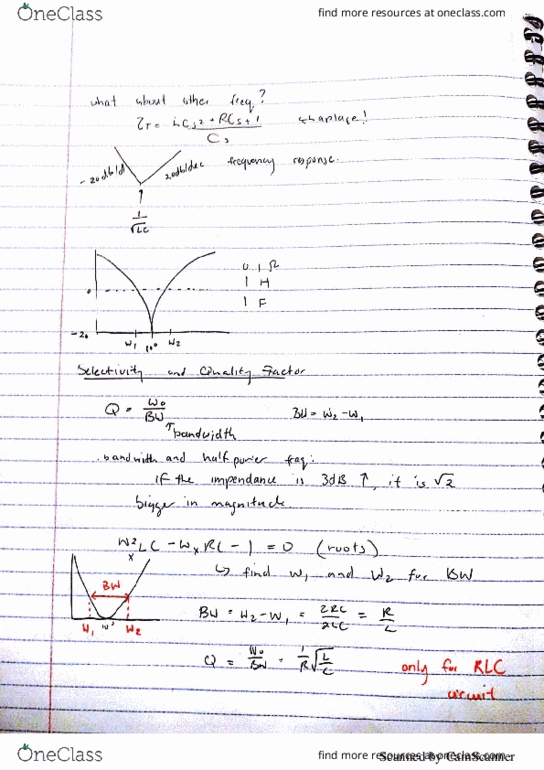 OneClass
find more resources at oneclass.com
what about other freq?
Zr = LCs² + RCs + 1 / Cs laplace!
-20db/d
20db/dec
frequency response.
1/√LC
0.1 Ω
1 H
1 F
0
-20
W₁ 10⁰ W₂
Selectivity and Quality Factor
Q = W₀/BW
BW = W₂ - W₁
↑bandwidth
bandwith and half power freq:
if the impendance is 3dB ↑, it is √2
bigger in magnitude
Wₓ²LC - WₓRC - 1 = 0 (roots)
↳ find W₁ and W₂ for BW
BW
W₁ W₂
BW = W₂ - W₁ = 2RC/2LC = R/L
Q = W₀/BW = 1/R √L/C
only for RLC
circuit
OneClass
find more resources at oneclass.com
Scanned by CamScanner